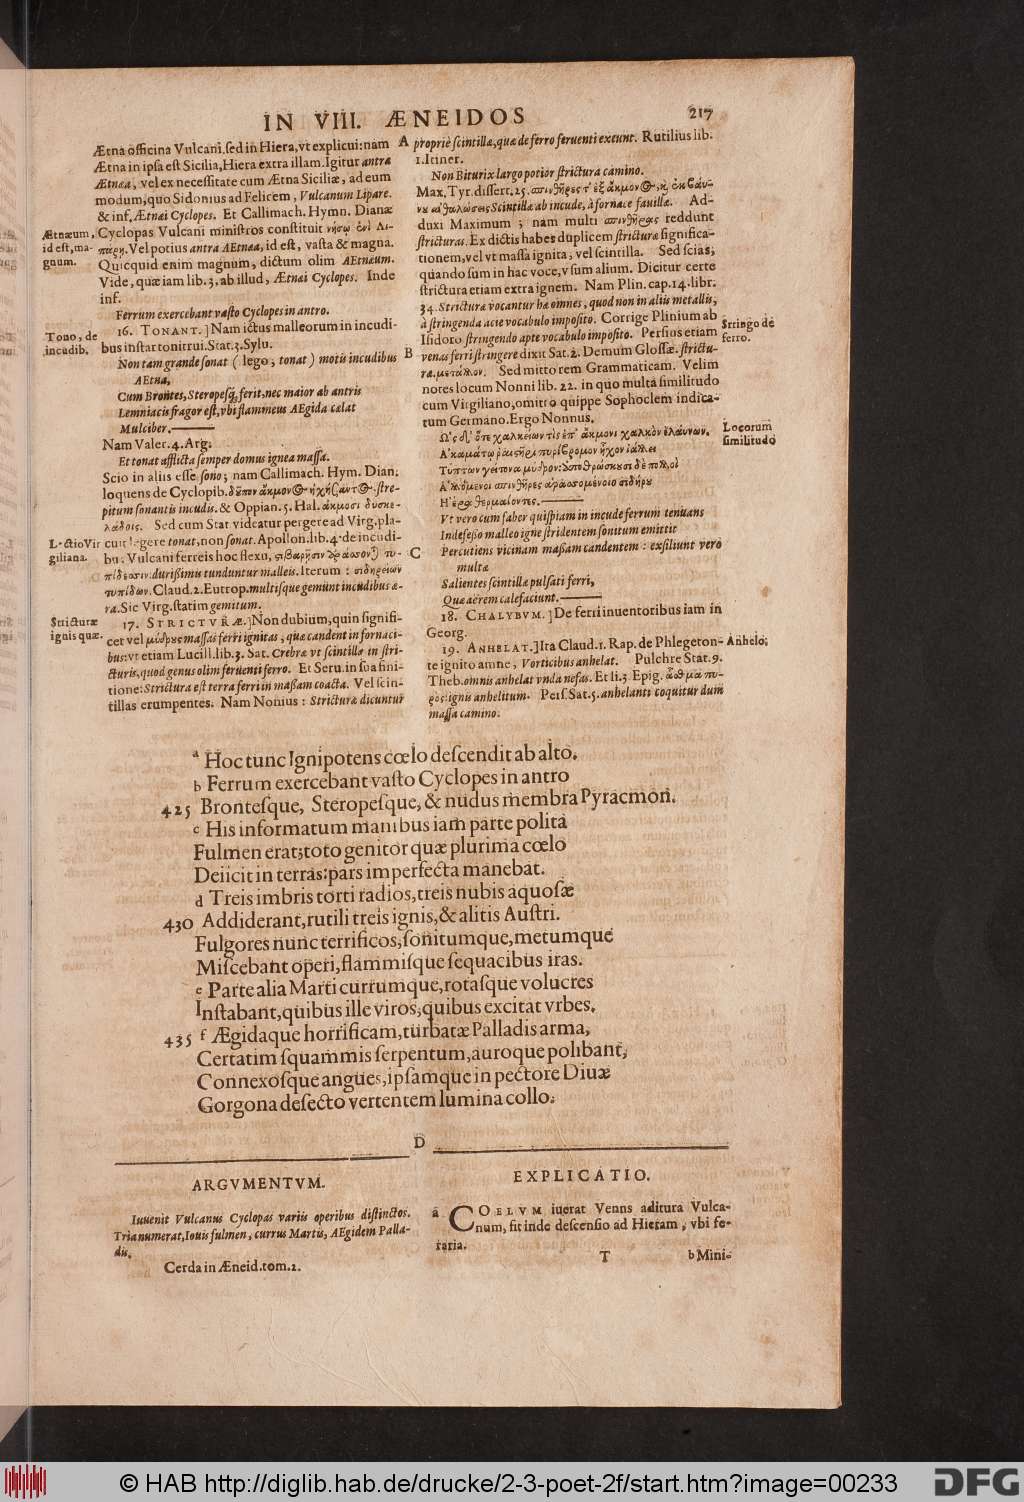 IN VIII. ÆNEIDOS
217
Ætna officina Vulcani, sed in Hiera, vt explicui: nam
Ætna in ipsa est Sicilia, Hiera extra illam. Igitur antra
Ætnæa, vel ex necessitate cum Ætna Siciliæ, ad eum
modum, quo Sidonius ad Felicem, Vulcanum Lipare.
& inf. Ætnæi Cyclopes. Et Callimach. Hymn. Dianæ
Cyclopas Vulcani ministros constituit νήσῳ ἐνὶ Λι-
πάρῃ. Vel potius antra AEtnæa, id est, vasta & magna.
Quicquid enim magnum, dictum olim AEtnæum.
Vide, quæ iam lib. 3. ab illud, Ætnæi Cyclopes. Inde
inf.
Ferrum exercebant vasto Cyclopes in antro.
16. TONANT. ] Nam ictus malleorum in incudi-
bus instar tonitrui. Stat. 3. Sylu.
Non tam grande sonat (lego, tonat) motis incudibus
AEtna,
Cum Brontes, Steropesq; ferit, nec maior ab antris
Lemniacis fragor est, vbi flammeus AEgida cælat
Mulciber.
Nam Valer. 4. Arg.
Et tonat afflicta semper domus ignea massa.
Scio in aliis esse sono; nam Callimach. Hym. Dian.
loquens de Cyclopib. δοῦπον ἄκμονος ἠχήσαντος. stre-
pitum sonantis incudis. & Oppian. 5. Hal. ἄκμοσι δυσκε-
λάδοις. Sed cum Stat videatur pergere ad Virg. pla-
cuit legere tonat, non sonat. Apollon. lib. 4. de incudi-
bus Vulcani ferreis hoc flexu, στιβαρῇσιν ἀράσσονται τυ-
πίδεσσιν: durissimis tunduntur malleis. Iterum: σιδηρείων
τυπίδων. Claud. 2. Eutrop. multisque gemunt incudibus æ-
ra. Sic Virg. statim gemitum.
17. STRICTVRÆ. ] Non dubium, quin signifi-
cet vel μύδρους massas ferri ignitas, quæ candent in fornaci-
bus: vt etiam Lucill. lib. 3. Sat. Crebræ vt scintillæ in stri-
cturis, quod genus olim feruenti ferro. Et Seru. in sua fini-
tione: Strictura est terra ferri in massam coacta. Vel scin-
tillas erumpentes. Nam Nonius: Stricturæ dicuntur
Ætnæum,
id est, ma-
gnum.
Tono, de
incudib.
Lectio Vir
giliana.
Stricturæ
ignis quæ.
A
B
C
propriè scintillæ, quæ de ferro feruenti exeunt. Rutilius lib.
1. Itiner.
Non Biturix largo potior strictura camino.
Max. Tyr. dissert. 25. σπινθῆρες τ' ἐξ ἄκμονος, καὶ ἐκ βαύ-
νου αἰθαλώσεις Scintillæ ab incude, à fornace fauillæ. Ad-
duxi Maximum; nam multi σπινθῆρας reddunt
stricturas. Ex dictis habes duplicem stricturæ significa-
tionem, vel vt massa ignita, vel scintilla. Sed scias,
quandosum in hac voce, vsum alium. Dicitur certe
strictura etiam extra ignem. Nam Plin. cap. 14. libr.
34. Stricturæ vocantur hæ omnes, quod non in aliis metallis,
à stringenda acie vocabulo imposito. Corrige Plinium ab
Isidoro stringendo apte vocabulo imposito. Persius etiam
venas ferri stringere dixit Sat. 2. Demum Glossæ. strictu-
ra. μέταλλον. Sed mitto rem Grammaticam. Velim
notes locum Nonni lib. 22. in quo multa similitudo
cum Virgiliano, omitto quippe Sophoclem indica-
tum Germano. Ergo Nonnus.
Ὡς δ' ὅτε χαλκείων τις ἐπ' ἄκμονι χαλκὸν ἐλαύνων,
Τύπτων γείτονα μύδρον:
Ἁλλόμενοι σπινθῆρες ἀρασσομένοιο σιδήρου
Ἠέρα θερμαίνοντες.
Vt vero cum faber quispiam in incude ferrum tenuans
Indefesso malleo igne stridentem sonitum emittit
Percutiens vicinam massam candentem: exsiliunt vero
multæ
Salientes scintillæ pulsati ferri,
Quæ aërem calefaciunt.
18. CHALYBVM. ] De ferri inuentoribus iam in
Georg.
19. ANHELAT. ] Ita Claud. 1. Rap. de Phlegeton-
te ignito amne, Vorticibus anhelat. Pulchre Stat. 9.
Theb. omnis anhelat vnda nefas. Et li. 3 Epig. ἆσθμα πυ-
ρὸς: ignis anhelitum. Pers. Sat. 5. anhelanti coquitur dum
massa camino.
Stringo de
ferro.
Locorum
similitudo
Anhelo.
a Hoc tunc Ignipotens cœlo descendit ab alto.
b Ferrum exercebant vasto Cyclopes in antro
425 Brontesque, Steropesque, & nudus membra Pyracmon.
c His informatum manibus iam parte polita
Fulmen erat; toto genitor quæ plurima cœlo
Deiicit in terras: pars imperfecta manebat.
d Treis imbris torti radios, treis nubis aquosæ
430 Addiderant, rutili treis ignis, & alitis Austri.
Fulgores nunc terrificos, sonitumque, metumque
Miscebant operi, flammisque sequacibus iras.
e Parte alia Marti currumque, rotasque volucres
Instabant, quibus ille viros, quibus excitat vrbes.
435 f Ægidaque horrificam, turbatæ Palladis arma,
Certatim squammis serpentum, auroque polibant,
Connexosque angues, ipsamque in pectore Diuæ
Gorgona desecto vertentem lumina collo.
D
ARGVMENTVM.
Inuenit Vulcanus Cyclopas variis operibus distinctos.
Tria numerat, Iouis fulmen, currus Martis, AEgidem Palla-
dis.
Cerda in Æneid. tom. 2.
EXPLICATIO.
a COELVM iuerat Venus aditura Vulca-
num, fit inde descensio ad Hieram, vbi fe-
raria.
T
b Mini-
© HAB http://diglib.hab.de/drucke/2-3-poet-2f/start.htm?image=00233
DFG